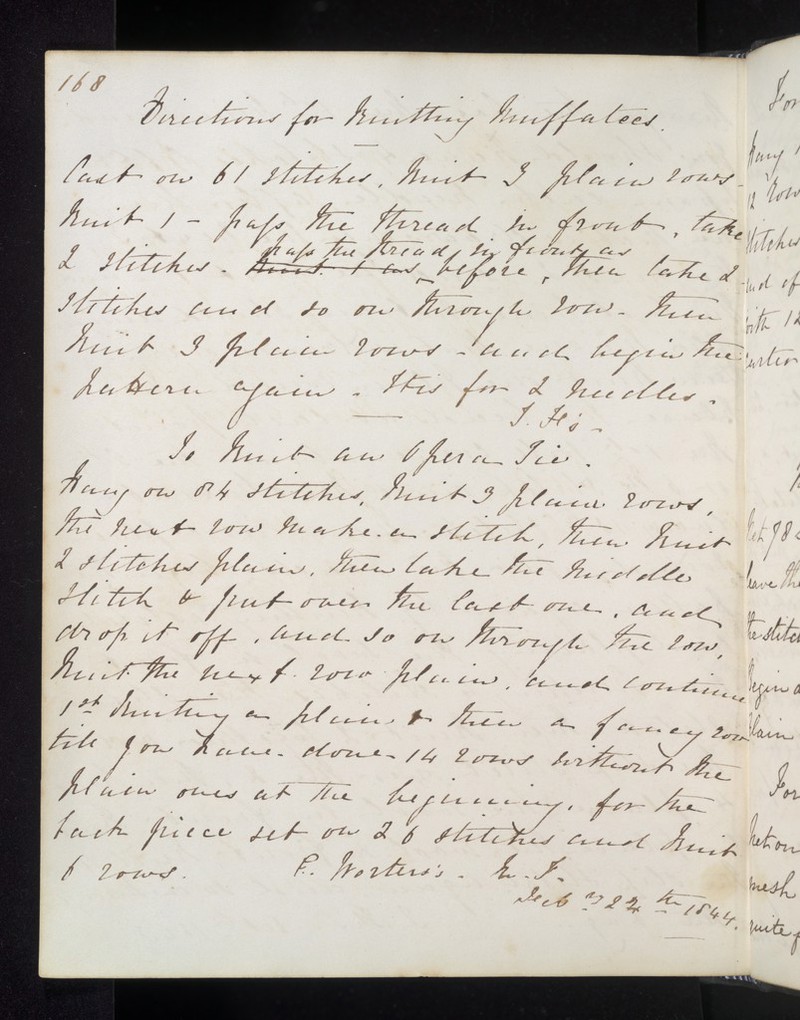 168
Directions for Knitting Muffatees.
Cast on 61 stitches, Knit 3 plain rows -
Knit 1 - pass the thread in front, take
pass the thread in front, as
2 stitches. Knit 1 as before, then take 2
stitches and so on through row - then
Knit 3 plain rows - and begin the
pattern again. This for 2 needles.
To Knit an Opera Tie.
Hang on 84 stitches, Knit 3 plain rows,
the next row make a stitch, then Knit
2 stitches plain, then take the middle
stitch & put over the last one, and
drop it off, and so on through the row,
Knit the next row plain, and continue
1st Knitting a plain & then a fancy row
till you have done 14 rows without the
plain ones at the beginning, for the
back piece set on 26 stitches and Knit
6 rows.
Feby 24th 1844.
For
Hang
12 row
stitches
and of
with 12
leave the
the stitch
Begin a
plain
For
Net on
mesh
quite